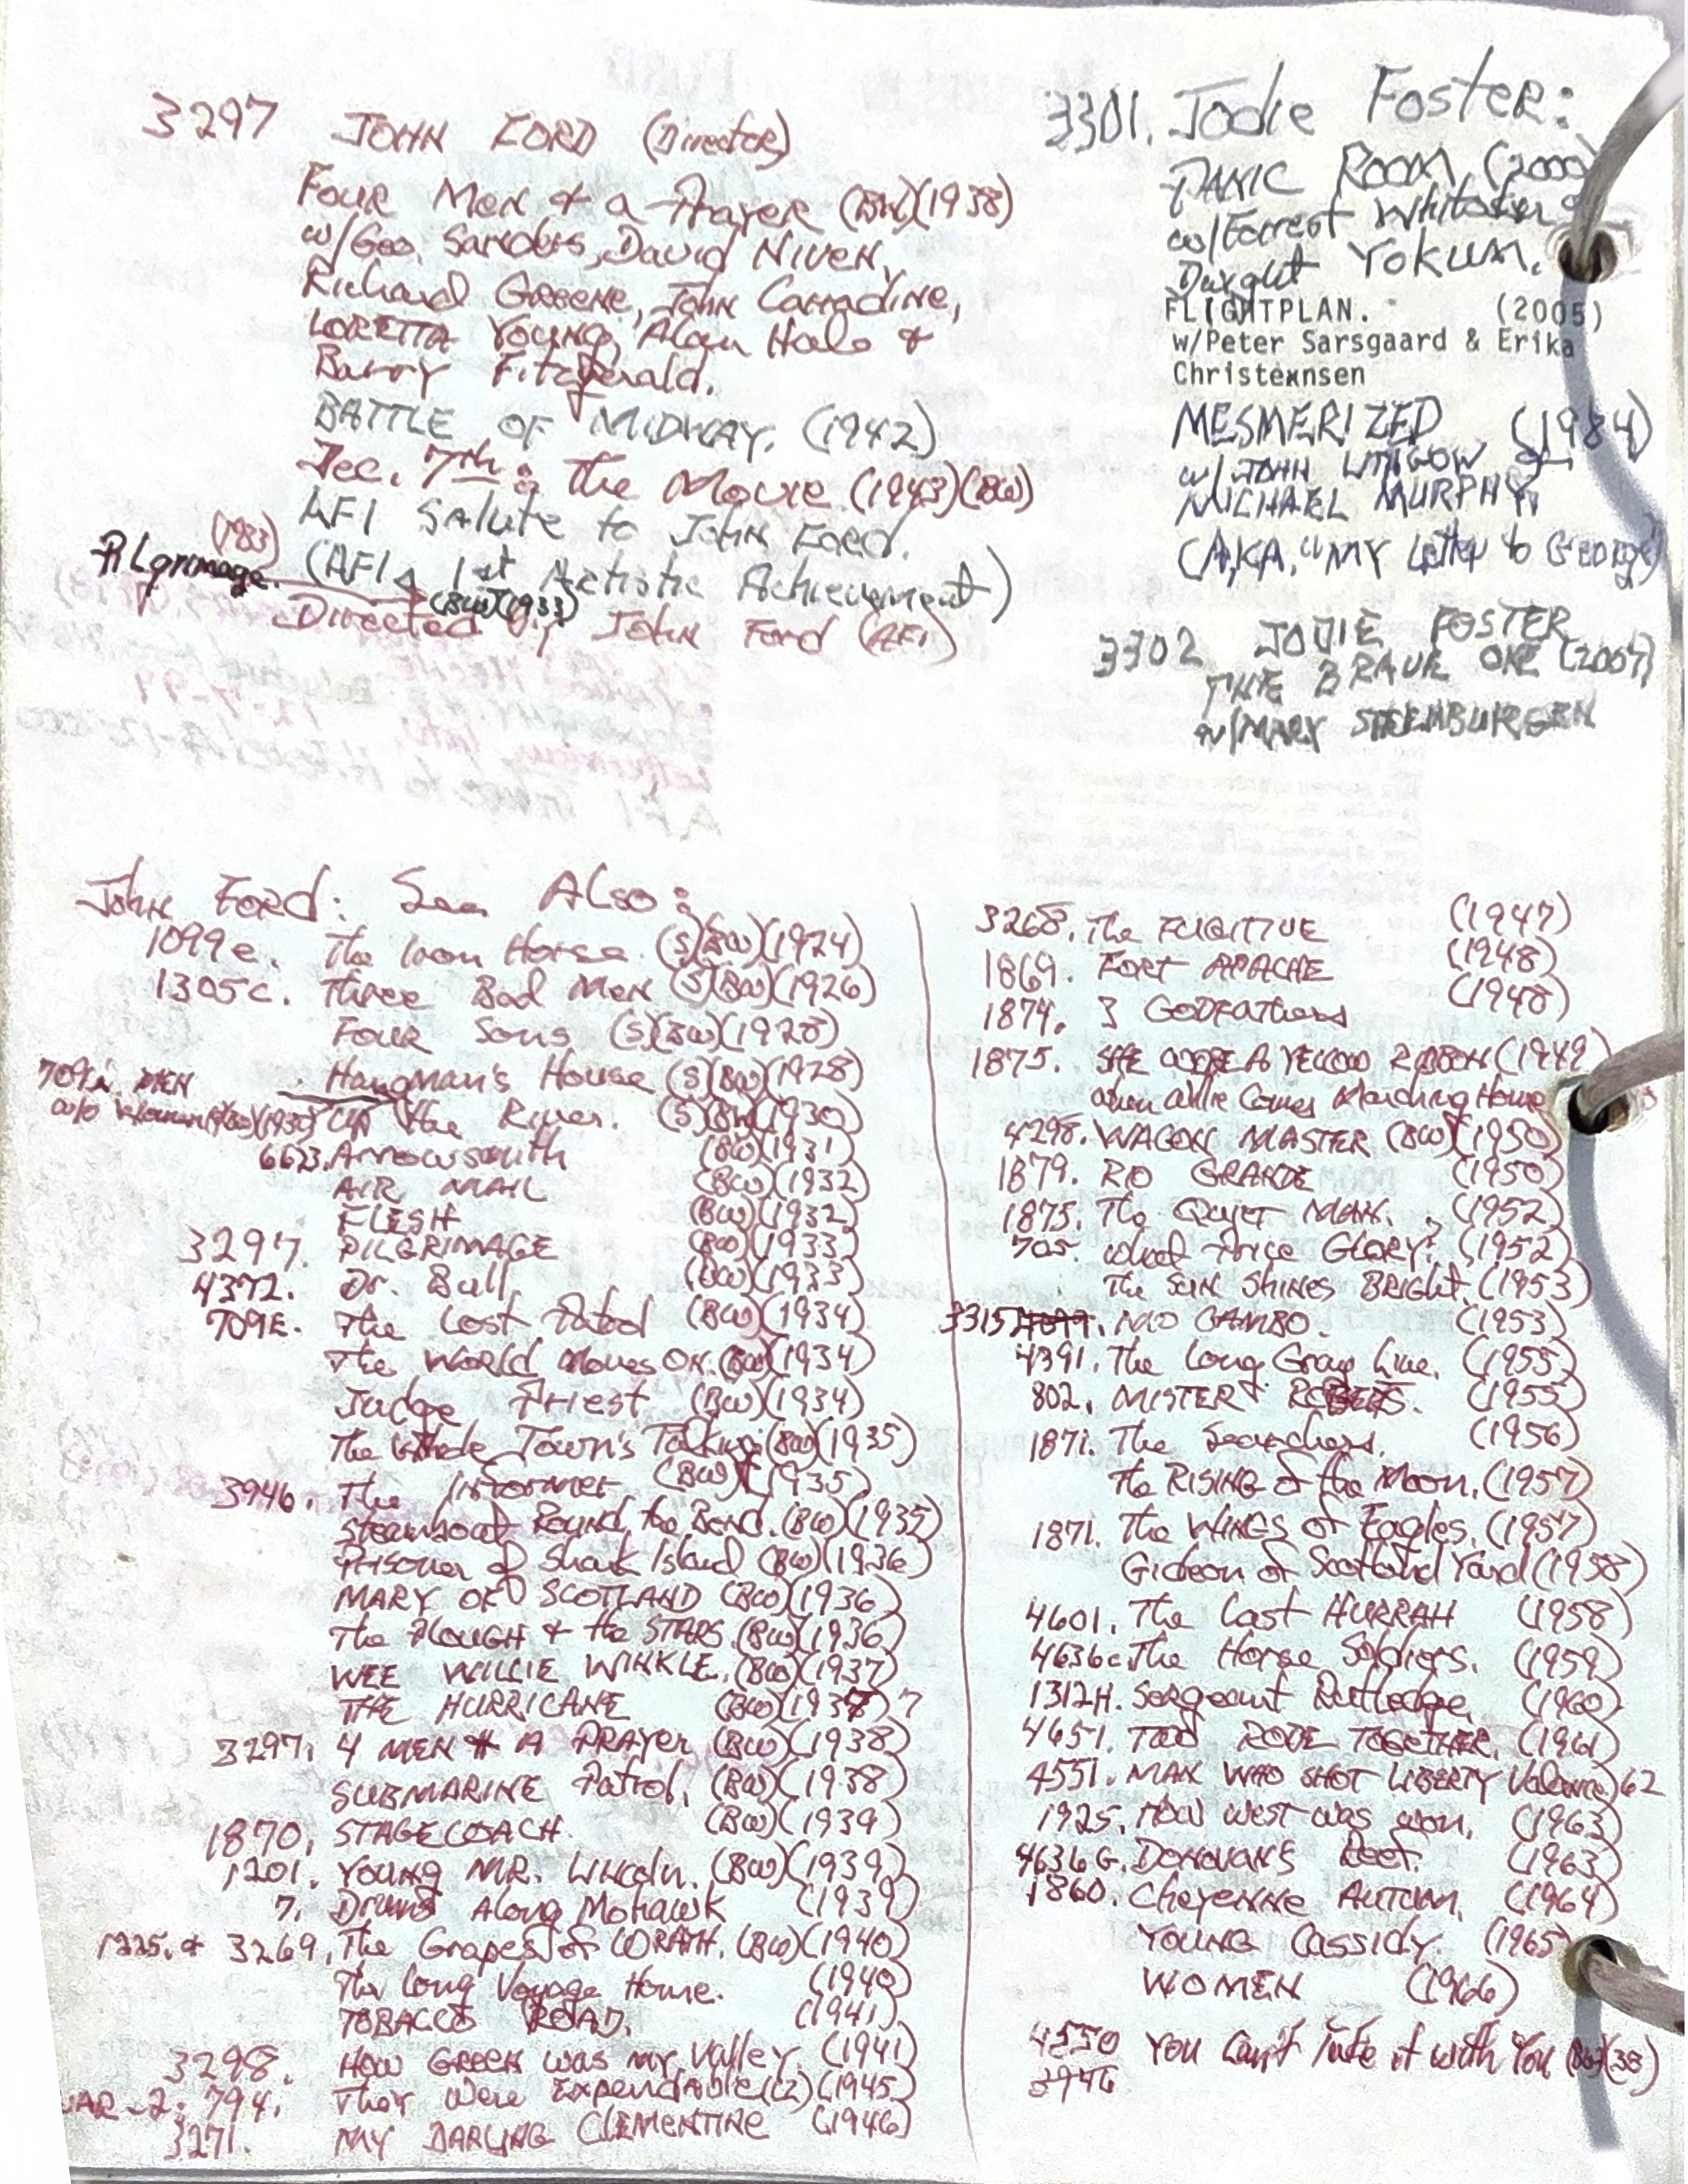 3297 JOHN FORD (Director)
FOUR MEN & a Prayer (BW)(1938)
w/Geo. Sanders, David NIVEN,
Richard GREENE, John Carradine,
LORETTA YOUNG, Alan Hale &
Barry Fitzgerald.
BATTLE OF MIDWAY. (1942)
Dec. 7th: The Movie (1943)(BW)
AFI Salute to John Ford.
(1983)
Pilgrimage. (AFI 1st Artistic Achievement)
(BW)(1933)
Directed by John Ford (AFI)
3301. Jodie Foster:
PANIC ROOM (2000)
w/Forrest Whitaker &
Dwight YOKUM.
FLIGHTPLAN. (2005)
w/Peter Sarsgaard & Erika
Christexnsen
MESMERIZED (1984)
w/JOHN LITHGOW &
MICHAEL MURPHY,
(A.K.A. "MY Letter to George)
3302 JODIE FOSTER
THE BRAVE ONE (2007)
w/MARY STEENBURGEN
John Ford: See Also:
1099e. The Iron Horse. (S)(BW)(1924)
1305c. Three Bad Men (S)(BW)(1926)
Four Sons (S)(BW)(1928)
Hangman's House (S)(BW)(1928)
709 MEN
w/o Women (BW)(1930) Up the River. (S)(BW)(1930)
6623. Arrowsmith (BW)(1931)
AIR MAIL (BW)(1932)
FLESH (BW)(1932)
3297. PILGRIMAGE (BW)(1933)
4372. Dr. Bull, (BW)(1933)
709E. The Lost Patrol (BW)(1934)
The WORLD Moves ON. (BW)(1934)
Judge Priest (BW)(1934)
The Whole Town's Talking (BW)(1935)
3946. The Informer (BW)(1935)
Steamboat Round the Bend. (BW)(1935)
Prisoner of Shark Island (BW)(1936)
MARY OF SCOTLAND (BW)(1936)
The PLOUGH & the STARS. (BW)(1936)
WEE WILLIE WINKLE. (BW)(1937)
THE HURRICANE (BW)(1937) 7
3297. 4 MEN & A PRAYER (BW)(1938)
SUBMARINE Patrol. (BW)(1938)
1870. STAGECOACH. (BW)(1939)
1201. YOUNG MR. LINCOLN. (BW)(1939)
7. Drums Along Mohawk (1939)
1225. & 3269. The Grapes of WRATH. (BW)(1940)
The Long Voyage Home. (1940)
TOBACCO ROAD. (1941)
3298. HOW GREEN was my Valley. (1941)
WAR-2: 794. They Were Expendable (C2)(1945)
3271. MY DARLING CLEMENTINE (1946)
3268. The FUGITIVE (1947)
1869. FORT APACHE (1948)
1874. 3 GODFathers (1948)
1875. SHE WORE A YELLOW RIBBON (1949)
When Willie Comes Marching Home
4298. WAGON MASTER (BW)(1950)
1879. RIO GRANDE (1950)
1875. The Quiet MAN. (1952)
705. What Price GLORY? (1952)
The SUN SHINES BRIGHT. (1953)
3315 MOGAMBO. (1953)
4391. The Long Gray Line. (1955)
802. MISTER ROBERTS. (1955)
1871. The Searchers. (1956)
The RISING of the Moon. (1957)
1871. The WINGS of Eagles. (1957)
Gideon of Scotland Yard (1958)
4601. The Last HURRAH (1958)
4636c. The Horse Soldiers. (1959)
1312H. Sergeant Rutledge. (1960)
4651. TWO RODE TOGETHER. (1961)
4551. MAN WHO SHOT LIBERTY Valance) 62
1925. How West was won. (1963)
4636 G. DONOVAN'S Reef. (1963)
1860. Cheyenne Autumn. (1964)
YOUNG Cassidy. (1965)
WOMEN (1966)
4550 You Can't Take it with You (BW)(38)
3946